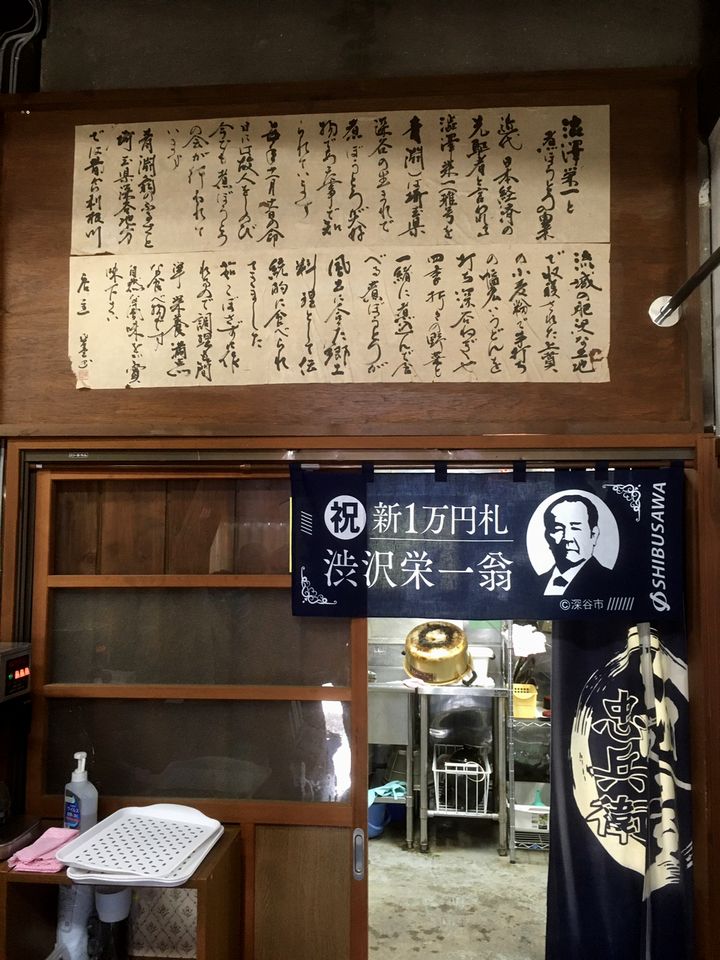 澁澤栄一と
煮ぼうとうの里
近代日本経済の
先駆者と言われる
澁澤栄一(雅号を
青淵)は埼玉県
深谷の生まれで
煮ぼうとうが好
物であった事で知
られています
毎年十一月十一日の命
日には故人をしのび
今でも煮ぼうとう
の会が行われて
います
青淵翁のふるさと
埼玉県深谷地方
では昔から利根川
流域の肥沃な土地
で収穫された上質
の小麦粉で手打ち
の幅広いうどんを
打ち深谷ねぎや
四季折々の野菜も
一緒に煮込んで食
べる煮ぼうとうが
風土に合った郷土
料理として伝
統的に食べられ
てきました
茹でこぼさずに作
れるので調理も簡
単 栄養満点
な食べ物です
自然な風味をご賞
味下さい
店主
祝 新1万円札
渋沢栄一翁
©深谷市
SHIBUSAWA
忠兵衛